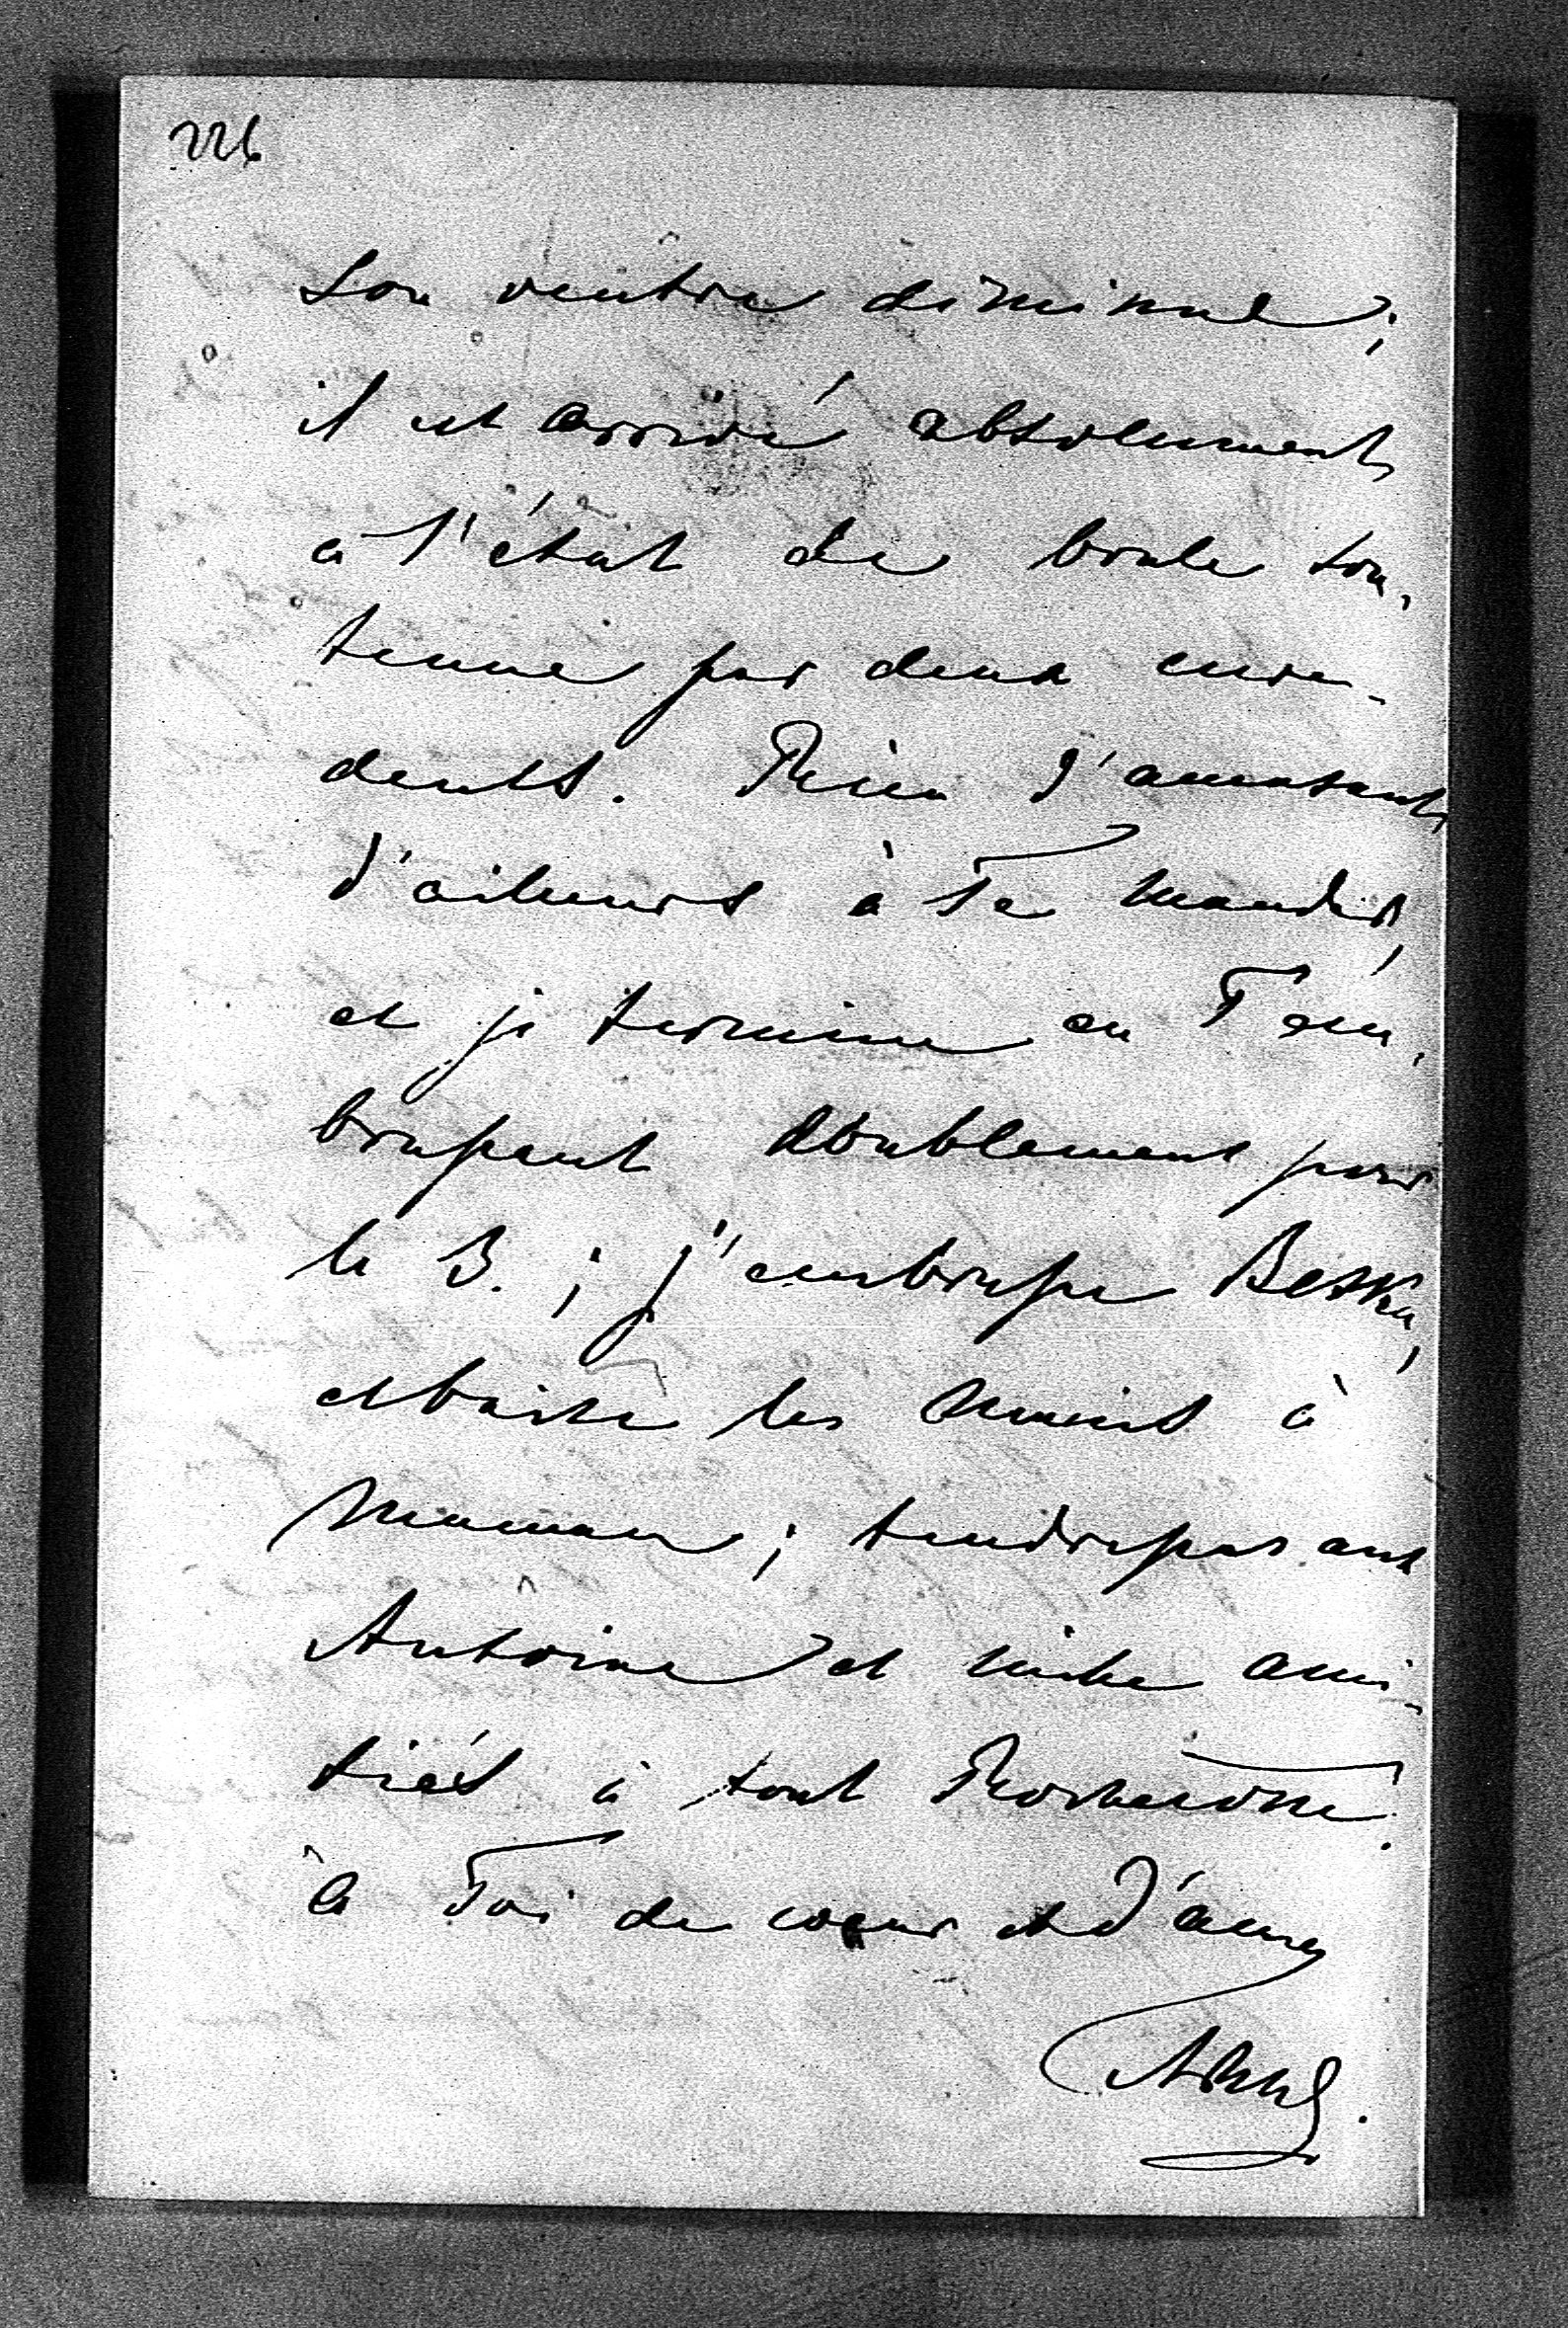 226
Son ventre diminue;
il est arrivé absolument
à l'état de boule sou-
tenue par deux cure-
dents. Rien d'amusant
d'ailleurs à Te mander,
et je termine en T'em-
brassant doublement pour
le 3. ; j'embrasse
et baise les mains à
Maman; tendresses aux
Antoine et mille ami-
tiés à tout
à Toi de coeur et d'âme